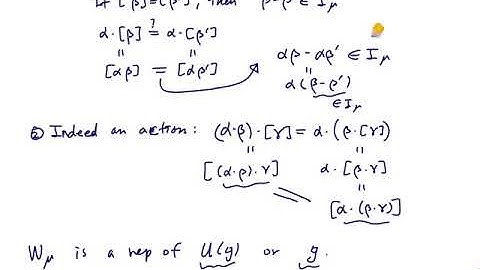 If [β]=[β'], then β-β' ∈ I_μ
α·[β] ?= α·[β']
[αβ] = [αβ']
αβ - αβ' ∈ I_μ
α(β-β')
∈ I_μ
② Indeed an action: (α·β)·[γ] = α·(β·[γ])
[(α·β)·γ] α·[β·γ]
[α·(β·γ)]
W_μ is a rep of U(g) or g.